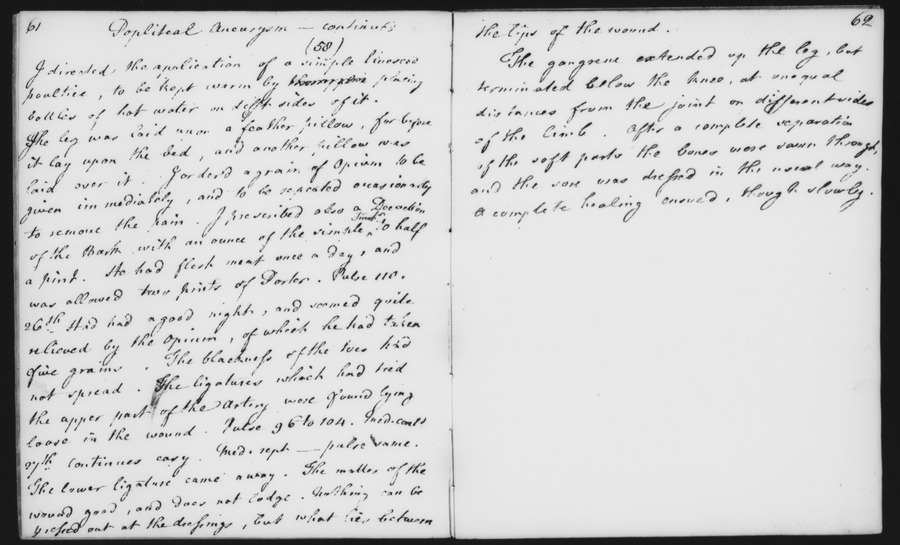 61 Popliteal Aneurysm — continued
(58)
I directed the application of a simple linseed
poultice, to be kept warm by placing
bottles of hot water on diff.t sides of it.
The leg was laid upon a feather pillow, for before
it lay upon the bed, and another pillow was
laid over it. I order'd a grain of Opium to be
given immediately, and to be repeated occasionally
to remove the pain. I prescribed also a Decoction
of the Bark with an ounce of the simple Tinct.r to half
a pint. He had flesh meat once a day, and
was allowed two pints of Porter. Pulse 110.
26th had had a good night, and seemed quite
relieved by the Opium, of which he had taken
five grains. The blackness of the toes had
not spread. The ligatures which had tied
the upper part of the Artery were found lying
loose in the wound. Pulse 96 to 104. Med. cont.
27th continues easy. Med. rept — pulse same.
The lower ligature came away. The matter of the
wound good, and does not lodge. Nothing can be
pressed out at the dressings, but what lies between
62
the lips of the wound.
The gangrene extended up the leg, but
terminated below the knee, at unequal
distances from the joint on different sides
of the limb. After a complete separation
of the soft parts the bones were sawn through,
and the sore was dressed in the usual way.
A complete healing ensued, though slowly.